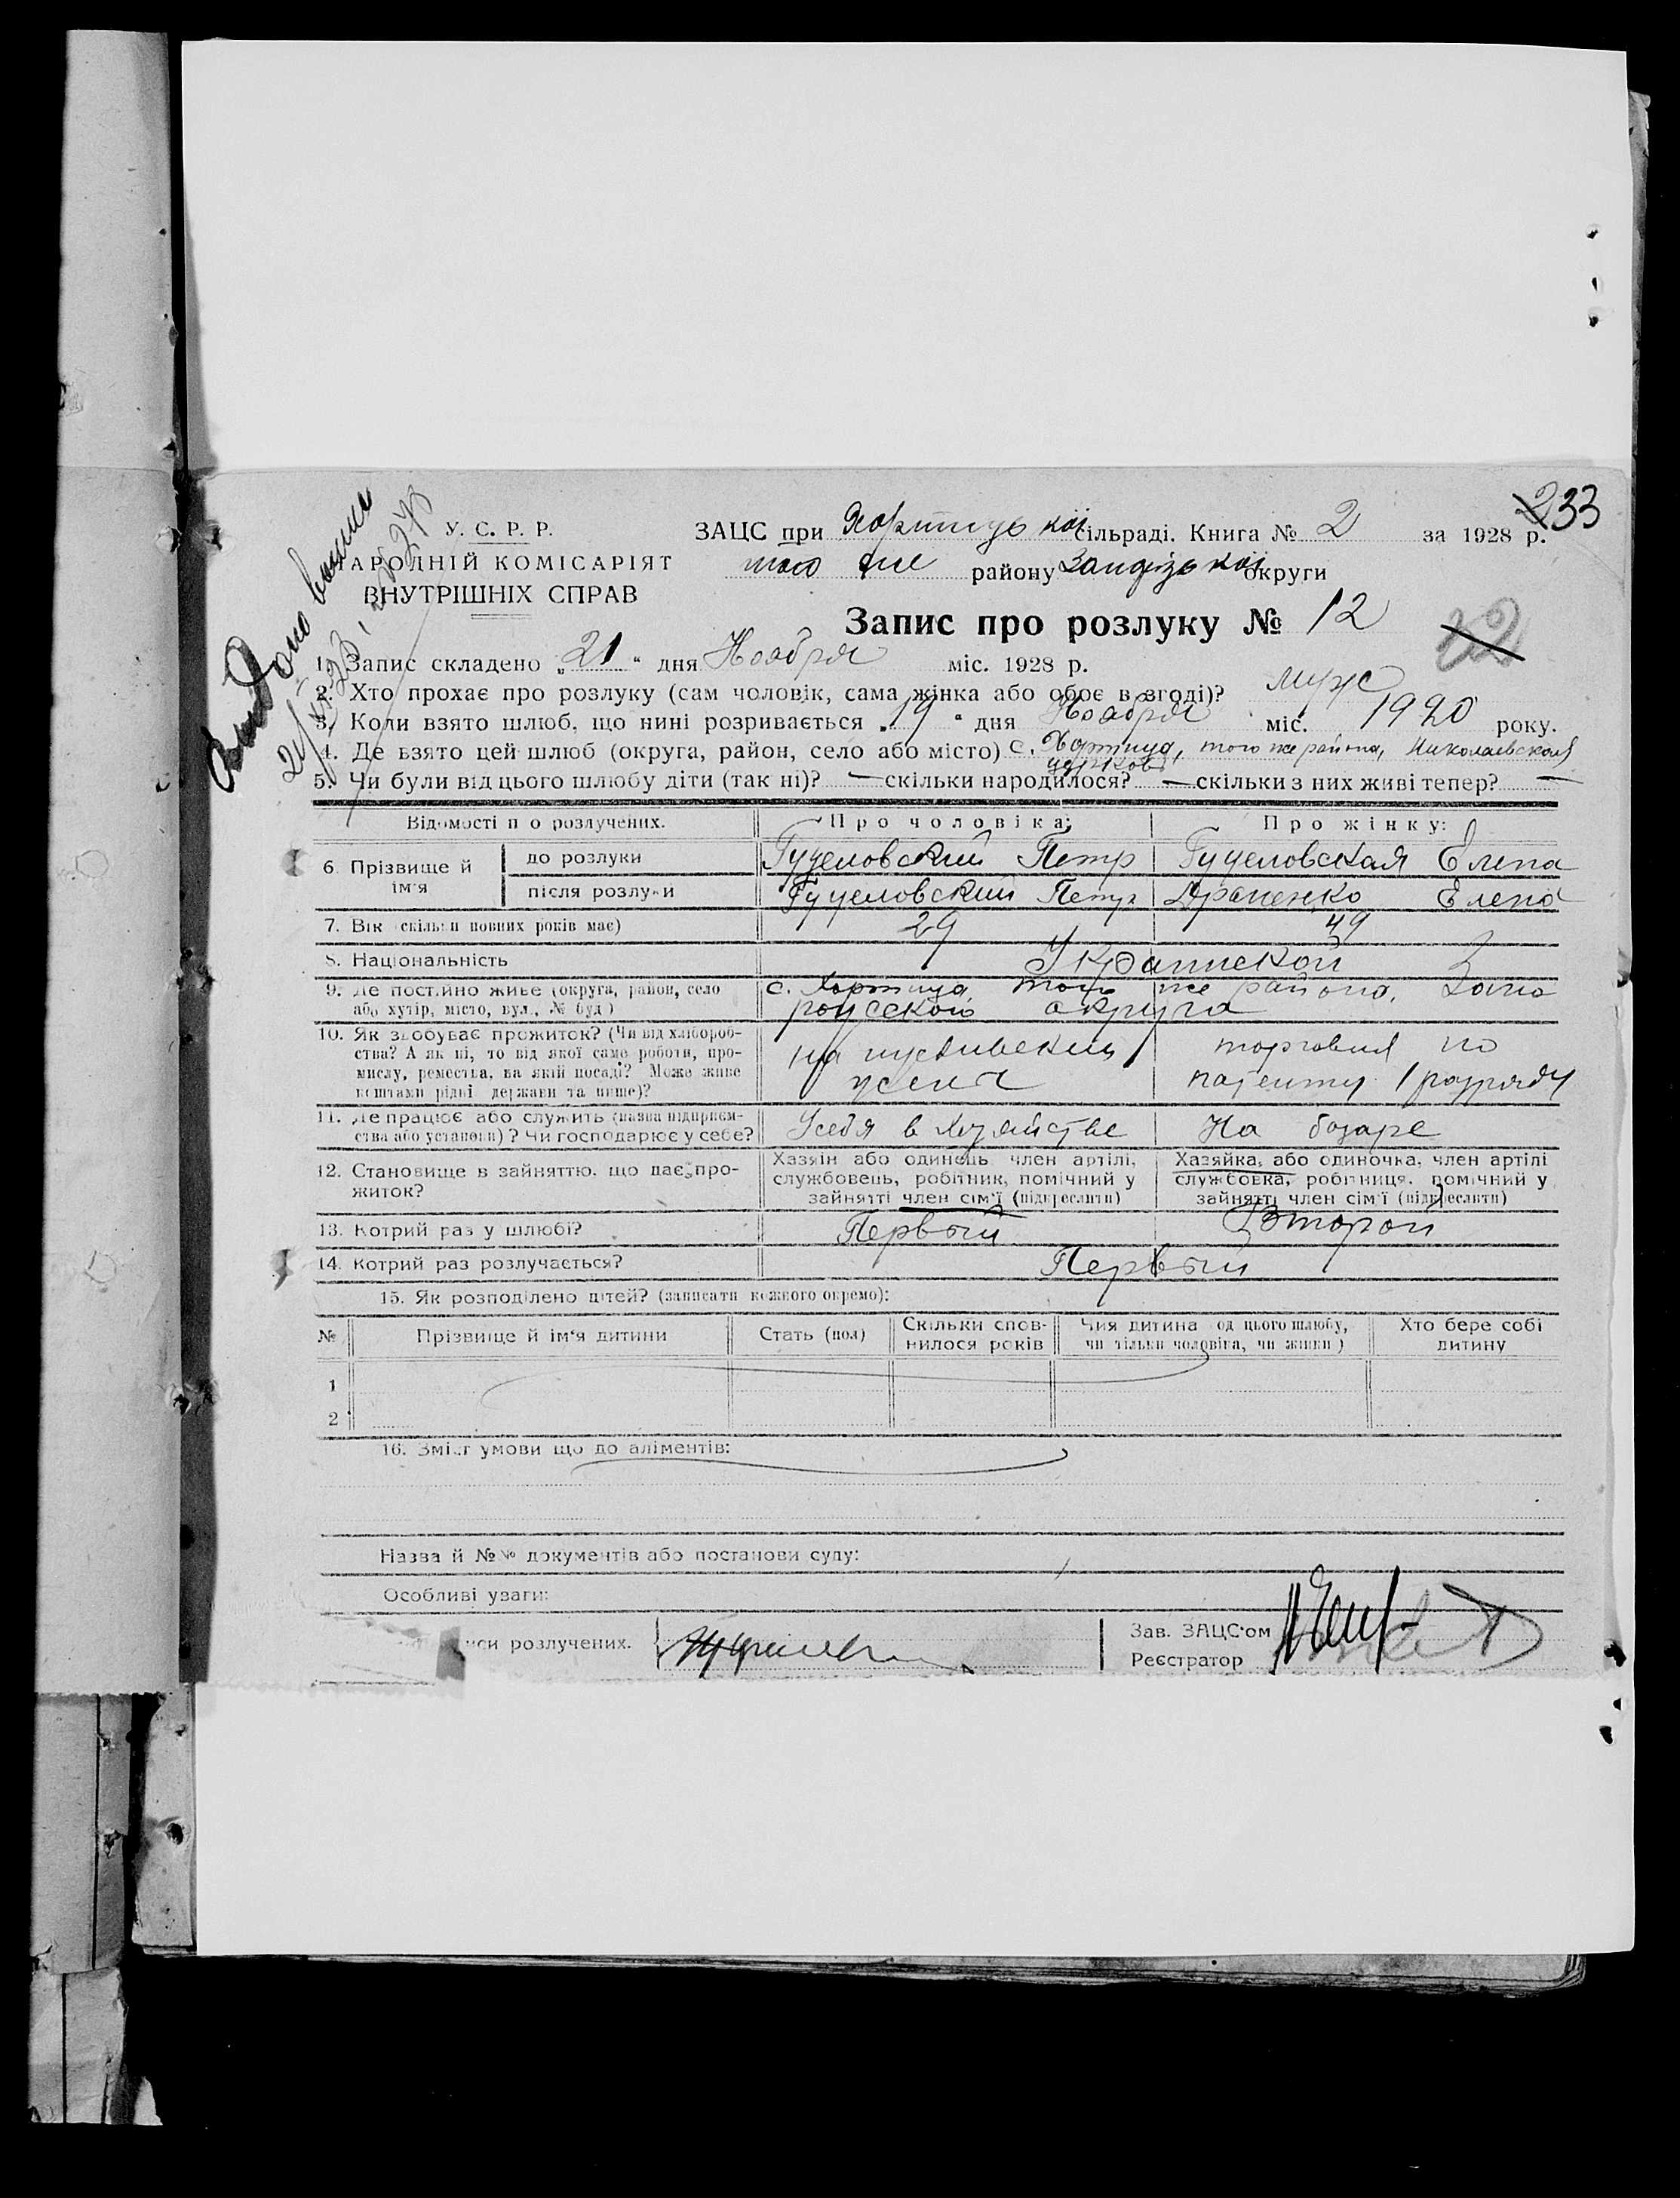 233
У. С. Р. Р.
НАРОДНІЙ КОМІСАРІЯТ
ВНУТРІШНІХ СПРАВ
ЗАЦС при Хортицької сільраді. Книга № 2 за 1928 р.
того же району Запорізької округи
Запис про розлуку № 12
12
1. Запис складено „21“ дня Ноября міс. 1928 р.
2. Хто прохає про розлуку (сам чоловік, сама жінка або обоє в згоді)? муж
3. Коли взято шлюб, що нині розривається „19“ дня Ноября міс. 1920 року.
4. Де взято цей шлюб (округа, район, село або місто) с. Хортица, того же района, Николаевская
церковь
5. Чи були від цього шлюбу діти (так ні)? — скільки народилося? — скільки з них живі тепер? —
Відомості про розлучених. Про чоловіка: Про жінку:
6. Прізвище й ім'я
до розлуки Гуцеловский Петр Гуцеловская Елена
після розлуки Гуцеловский Петр Драненко Елена
7. Вік (скільки повних років має) 29 49
8. Національність Украинской
9. Де постійно живе (округа, район, село с. Хортица того же района, Запо
або хутір, місто, вул., № буд) рожской округа
10. Як здобуває прожиток? (Чи від хлібороб-
ства? А як ні, то від якої саме роботи, про-
мислу, ремества, на якій посаді? Може живе
коштами рідні держави та инше)?
на иждивении
торговля по
патенту 1 разряду
11. Де працює або служить (назва підприєм-
ства або установи)? Чи господарює у себе?
У себя в хозяйстве На базаре
12. Становище в зайняттю, що дає про-
житок?
Хазяін або одинець член артілі,
службовець, робітник, помічний у
зайнятті член сім'ї (підкреслити)
Хазяйка, або одиночка, член артілі
службовка, робітниця, помічний у
зайнятті член сім'ї (підкреслити)
13. Котрий раз у шлюбі? Первый Второй
14. Котрий раз розлучається? Первый
15. Як розподілено дітей? (записати кожного окремо):
№ Прізвище й ім'я дитини Стать (пол) Скільки спов-
нилося років Чия дитина (од цього шлюбу,
чи тільки чоловіка, чи жінки) Хто бере собі
дитину
1
2
16. Зміст умови що до аліментів:
Назва й №№ документів або постанови суду:
Особливі уваги:
иси розлучених.
Зав. ЗАЦС'ом
Реєстратор